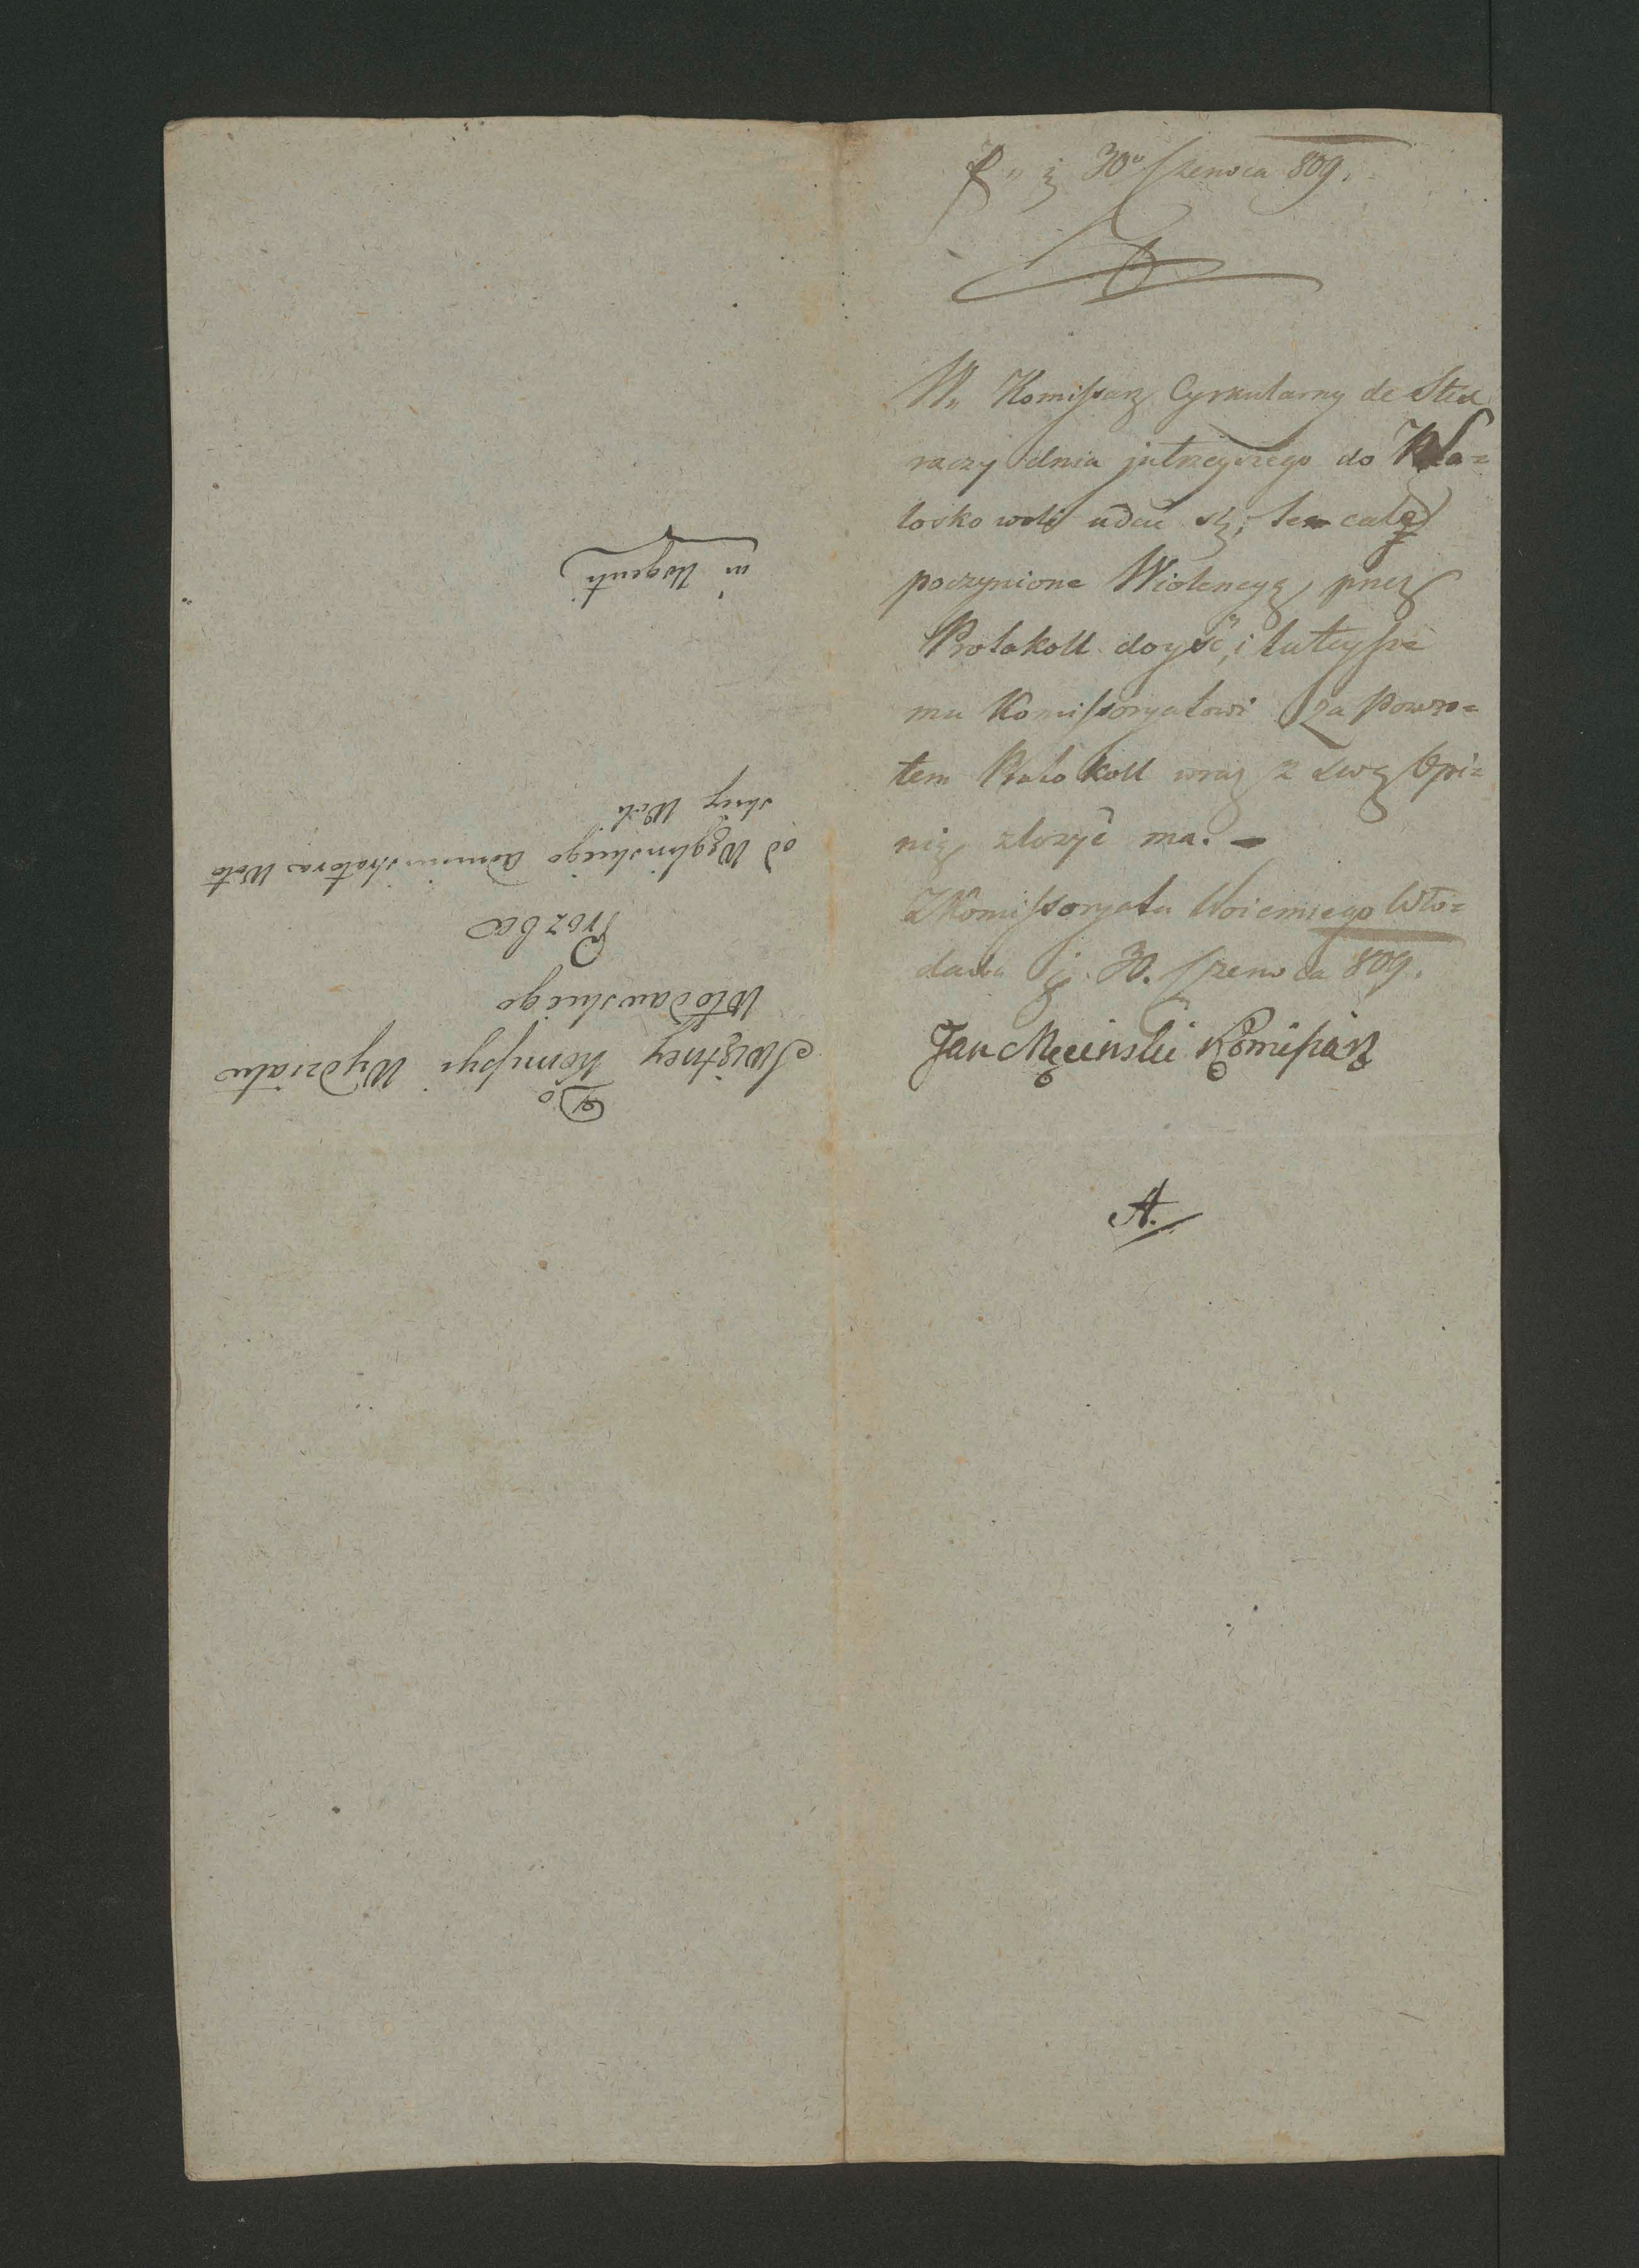 30° Czerwca 809.
W. Komissarz Cyrkularny de Stea
raczy dnia jutrzeyszego do Wła=
losko woli udać się, tam całą
poczynione Wiolencyą przez
Protokoll doyść, i tuteysze
mu Komissoryatowi za Powro=
tem Protokoll wraz z swą Opi=
nią złożyć ma. –
Z Komissoryatu Woiennego Wło=
dawa d. 30. Czerwca 809.
Jan Męcinski Komissarz
A.
Do
Swiętney Komissyi Wydziału
Włodawskiego
Prozba
od Węglinskiego Administratora Woło
skiey Woli
in Urgenti